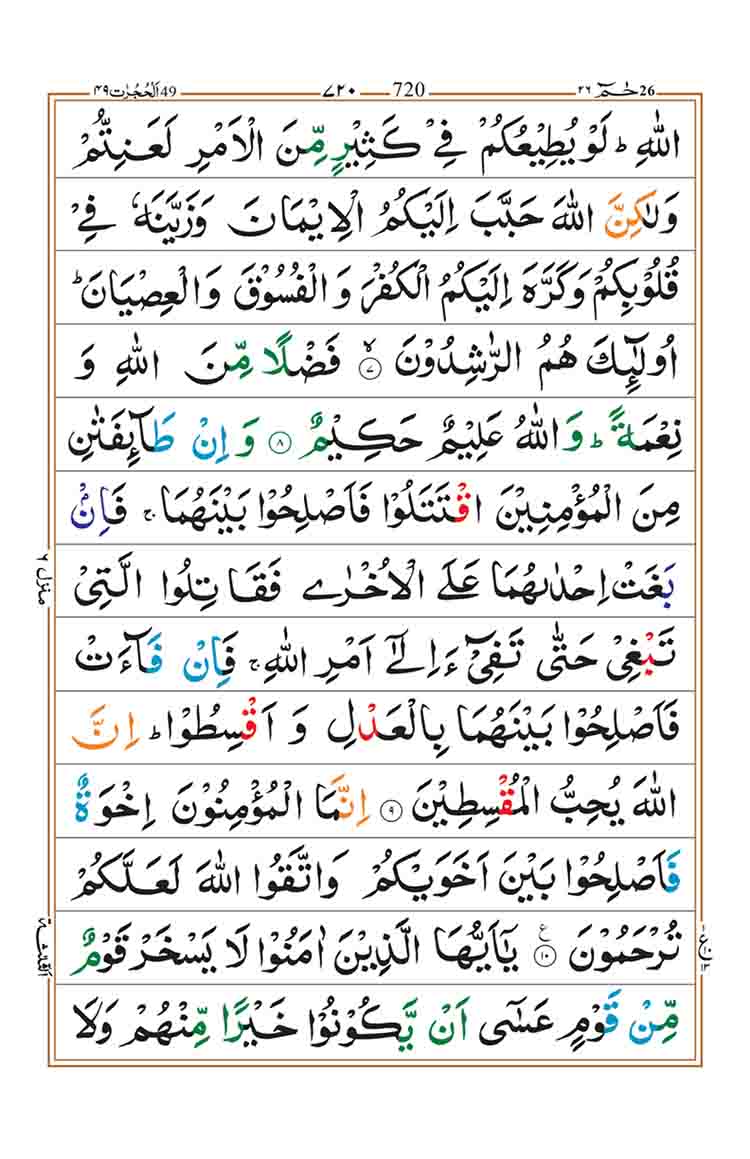 26 حٰمٓ ٢٦
720 ٧٢٠
49 اَلْحُجُرٰت ٤٩
اللّٰهِ ؕ لَوْ يُطِيْعُكُمْ فِيْ كَثِيْرٍ مِّنَ الْاَمْرِ لَعَنِتُّمْ
وَلٰكِنَّ اللّٰهَ حَبَّبَ اِلَيْكُمُ الْاِيْمَانَ وَزَيَّنَهٗ فِيْ
قُلُوْبِكُمْ وَكَرَّهَ اِلَيْكُمُ الْكُفْرَ وَالْفُسُوْقَ وَالْعِصْيَانَ ؕ
اُولٰٓئِكَ هُمُ الرّٰشِدُوْنَ ۙ ٧ فَضْلًا مِّنَ اللّٰهِ وَ
نِعْمَةً ؕ وَاللّٰهُ عَلِيْمٌ حَكِيْمٌ ٨ وَ اِنْ طَآئِفَتٰنِ
مِنَ الْمُؤْمِنِيْنَ اقْتَتَلُوْا فَاَصْلِحُوْا بَيْنَهُمَا ۚ فَاِنْۢ
بَغَتْ اِحْدٰىهُمَا عَلَي الْاُخْرٰي فَقَاتِلُوا الَّتِيْ
تَبْغِيْ حَتّٰى تَفِيْٓءَ اِلٰٓي اَمْرِ اللّٰهِ ۚ فَاِنْ فَآءَتْ
فَاَصْلِحُوْا بَيْنَهُمَا بِالْعَدْلِ وَ اَقْسِطُوْا ؕ اِنَّ
اللّٰهَ يُحِبُّ الْمُقْسِطِيْنَ ٩ اِنَّمَا الْمُؤْمِنُوْنَ اِخْوَةٌ
فَاَصْلِحُوْا بَيْنَ اَخَوَيْكُمْ وَاتَّقُوا اللّٰهَ لَعَلَّكُمْ
تُرْحَمُوْنَ ١٠ ع يٰٓاَيُّهَا الَّذِيْنَ اٰمَنُوْا لَا يَسْخَرْ قَوْمٌ
مِّنْ قَوْمٍ عَسٰٓى اَنْ يَّكُوْنُوْا خَيْرًا مِّنْهُمْ وَلَا
منزل ٦